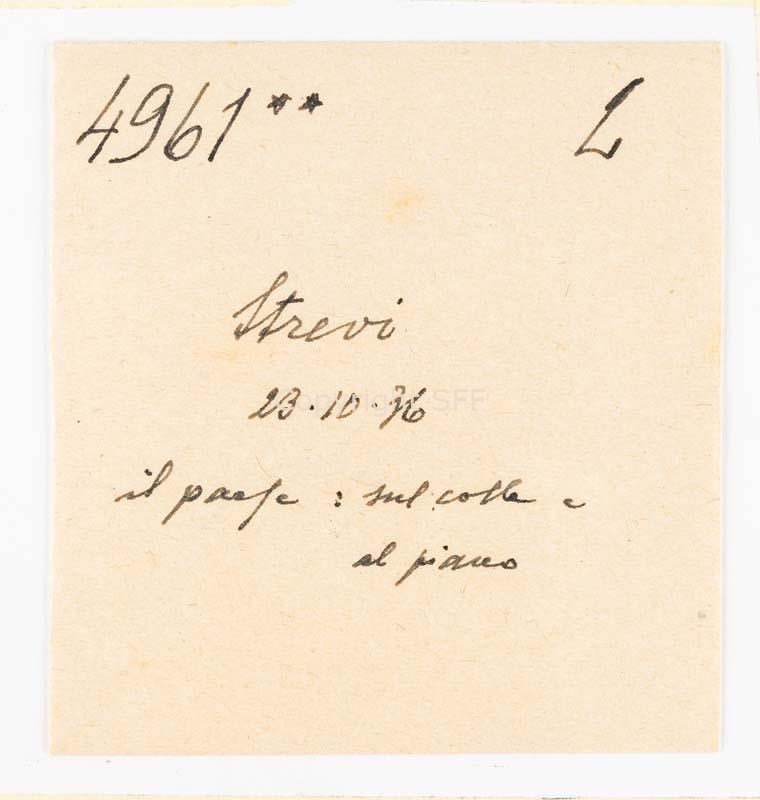 4961** L
Strevi
23·10·36
il paese : sul colle e
al piano